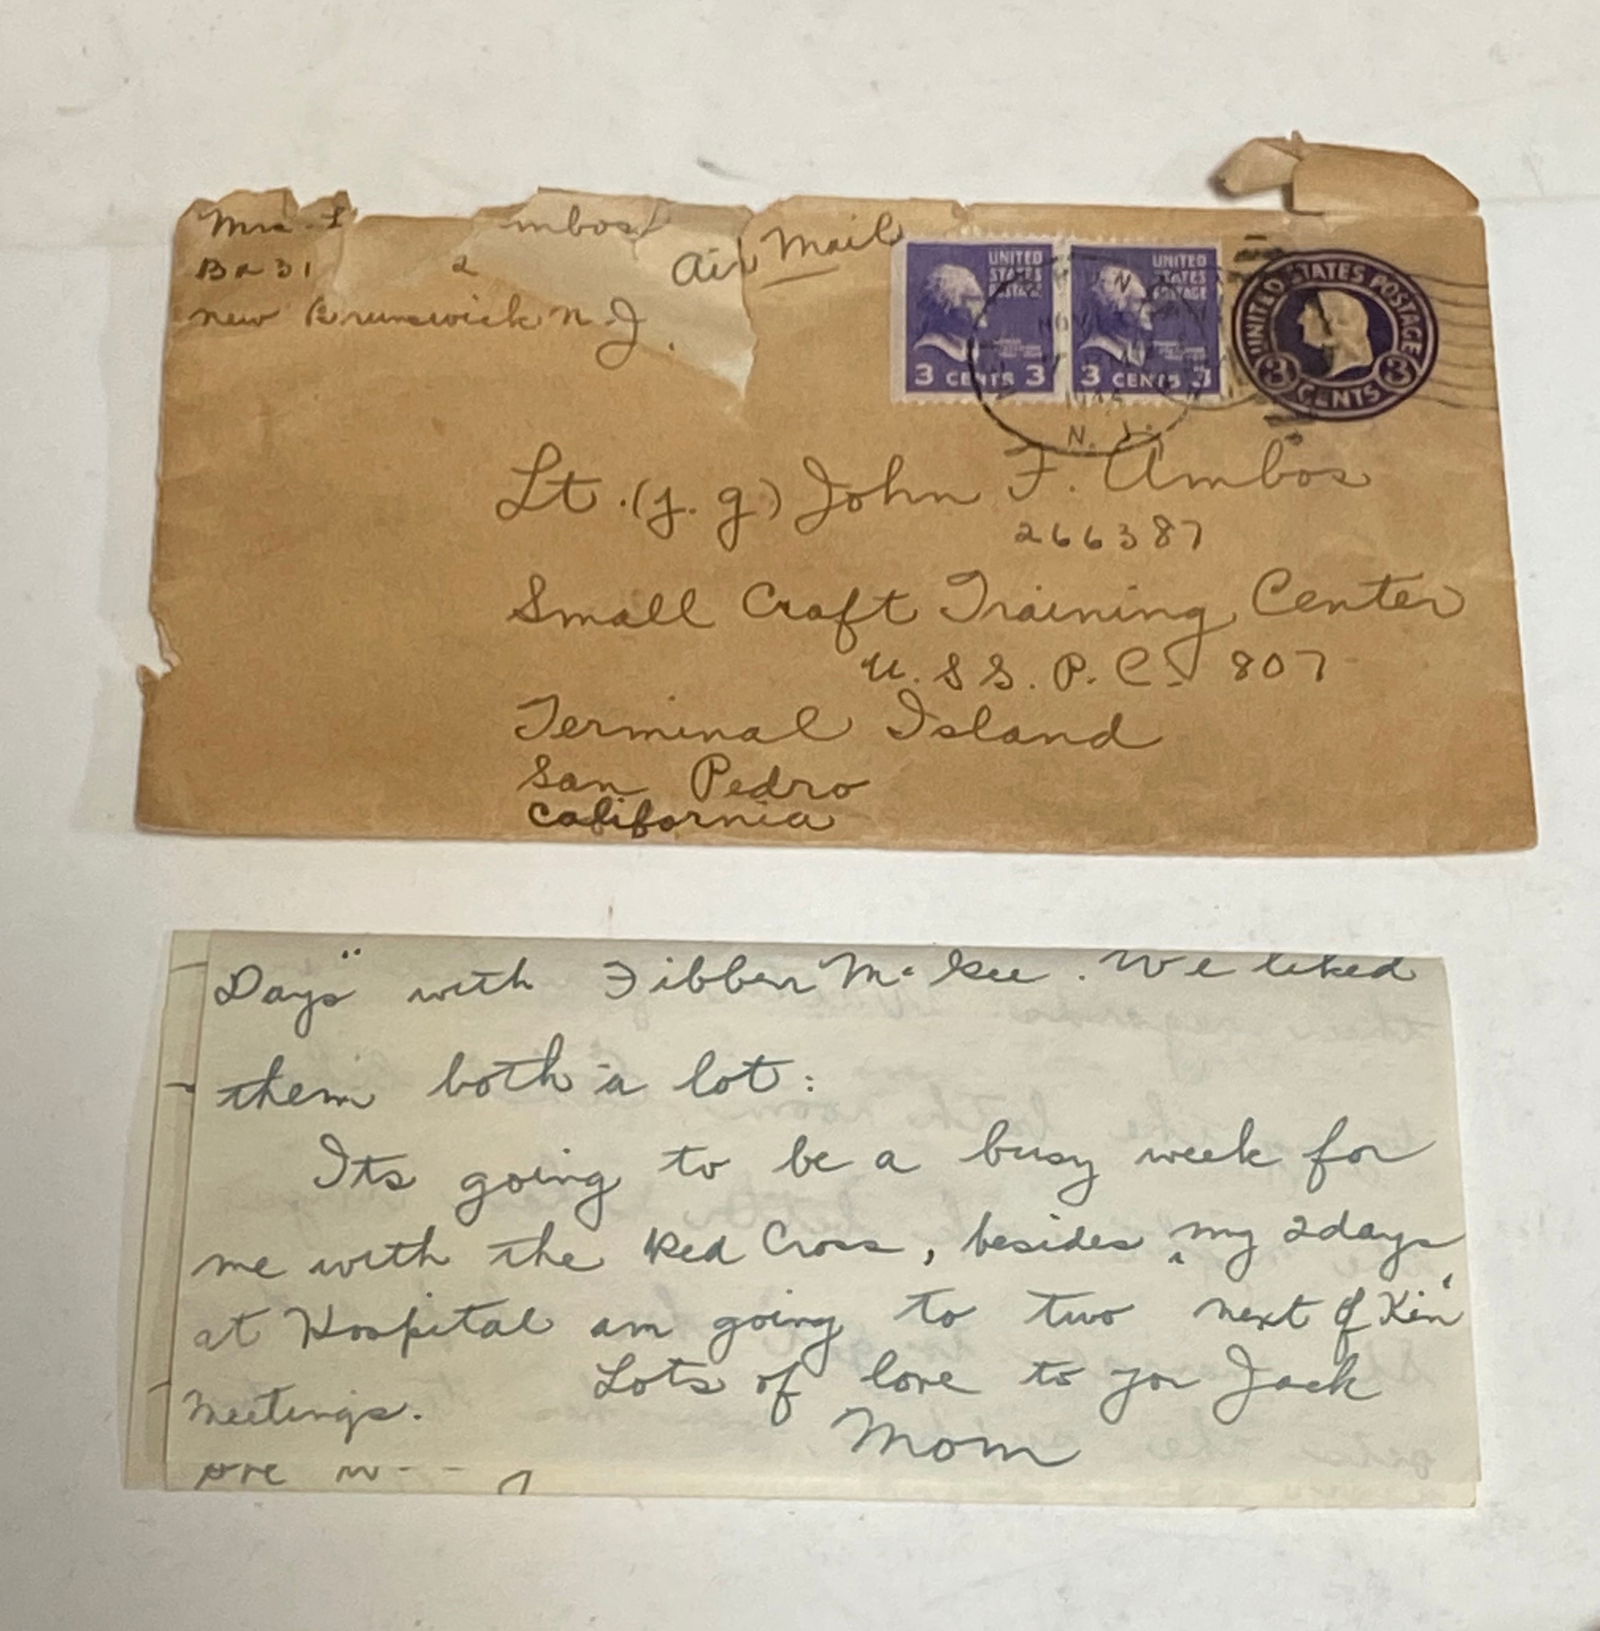 Mrs.
mbos
Air Mail
New Brunswick N.J.
UNITED STATES POSTAGE
3 CENTS 3
UNITED STATES POSTAGE
3 CENTS 3
UNITED STATES POSTAGE
3 CENTS 3
N. J.
Lt. (j.g) John F. Ambos
266387
Small Craft Training Center
U.S.S. P.C. 807
Terminal Island
San Pedro
California
Days" with Fibber McGee. We liked
them both a lot:
Its going to be a busy week for
me with the Red Cross, besides my 2 days
at Hospital am going to two "next of Kin"
Meetings. Lots of love to you Jack
Mom